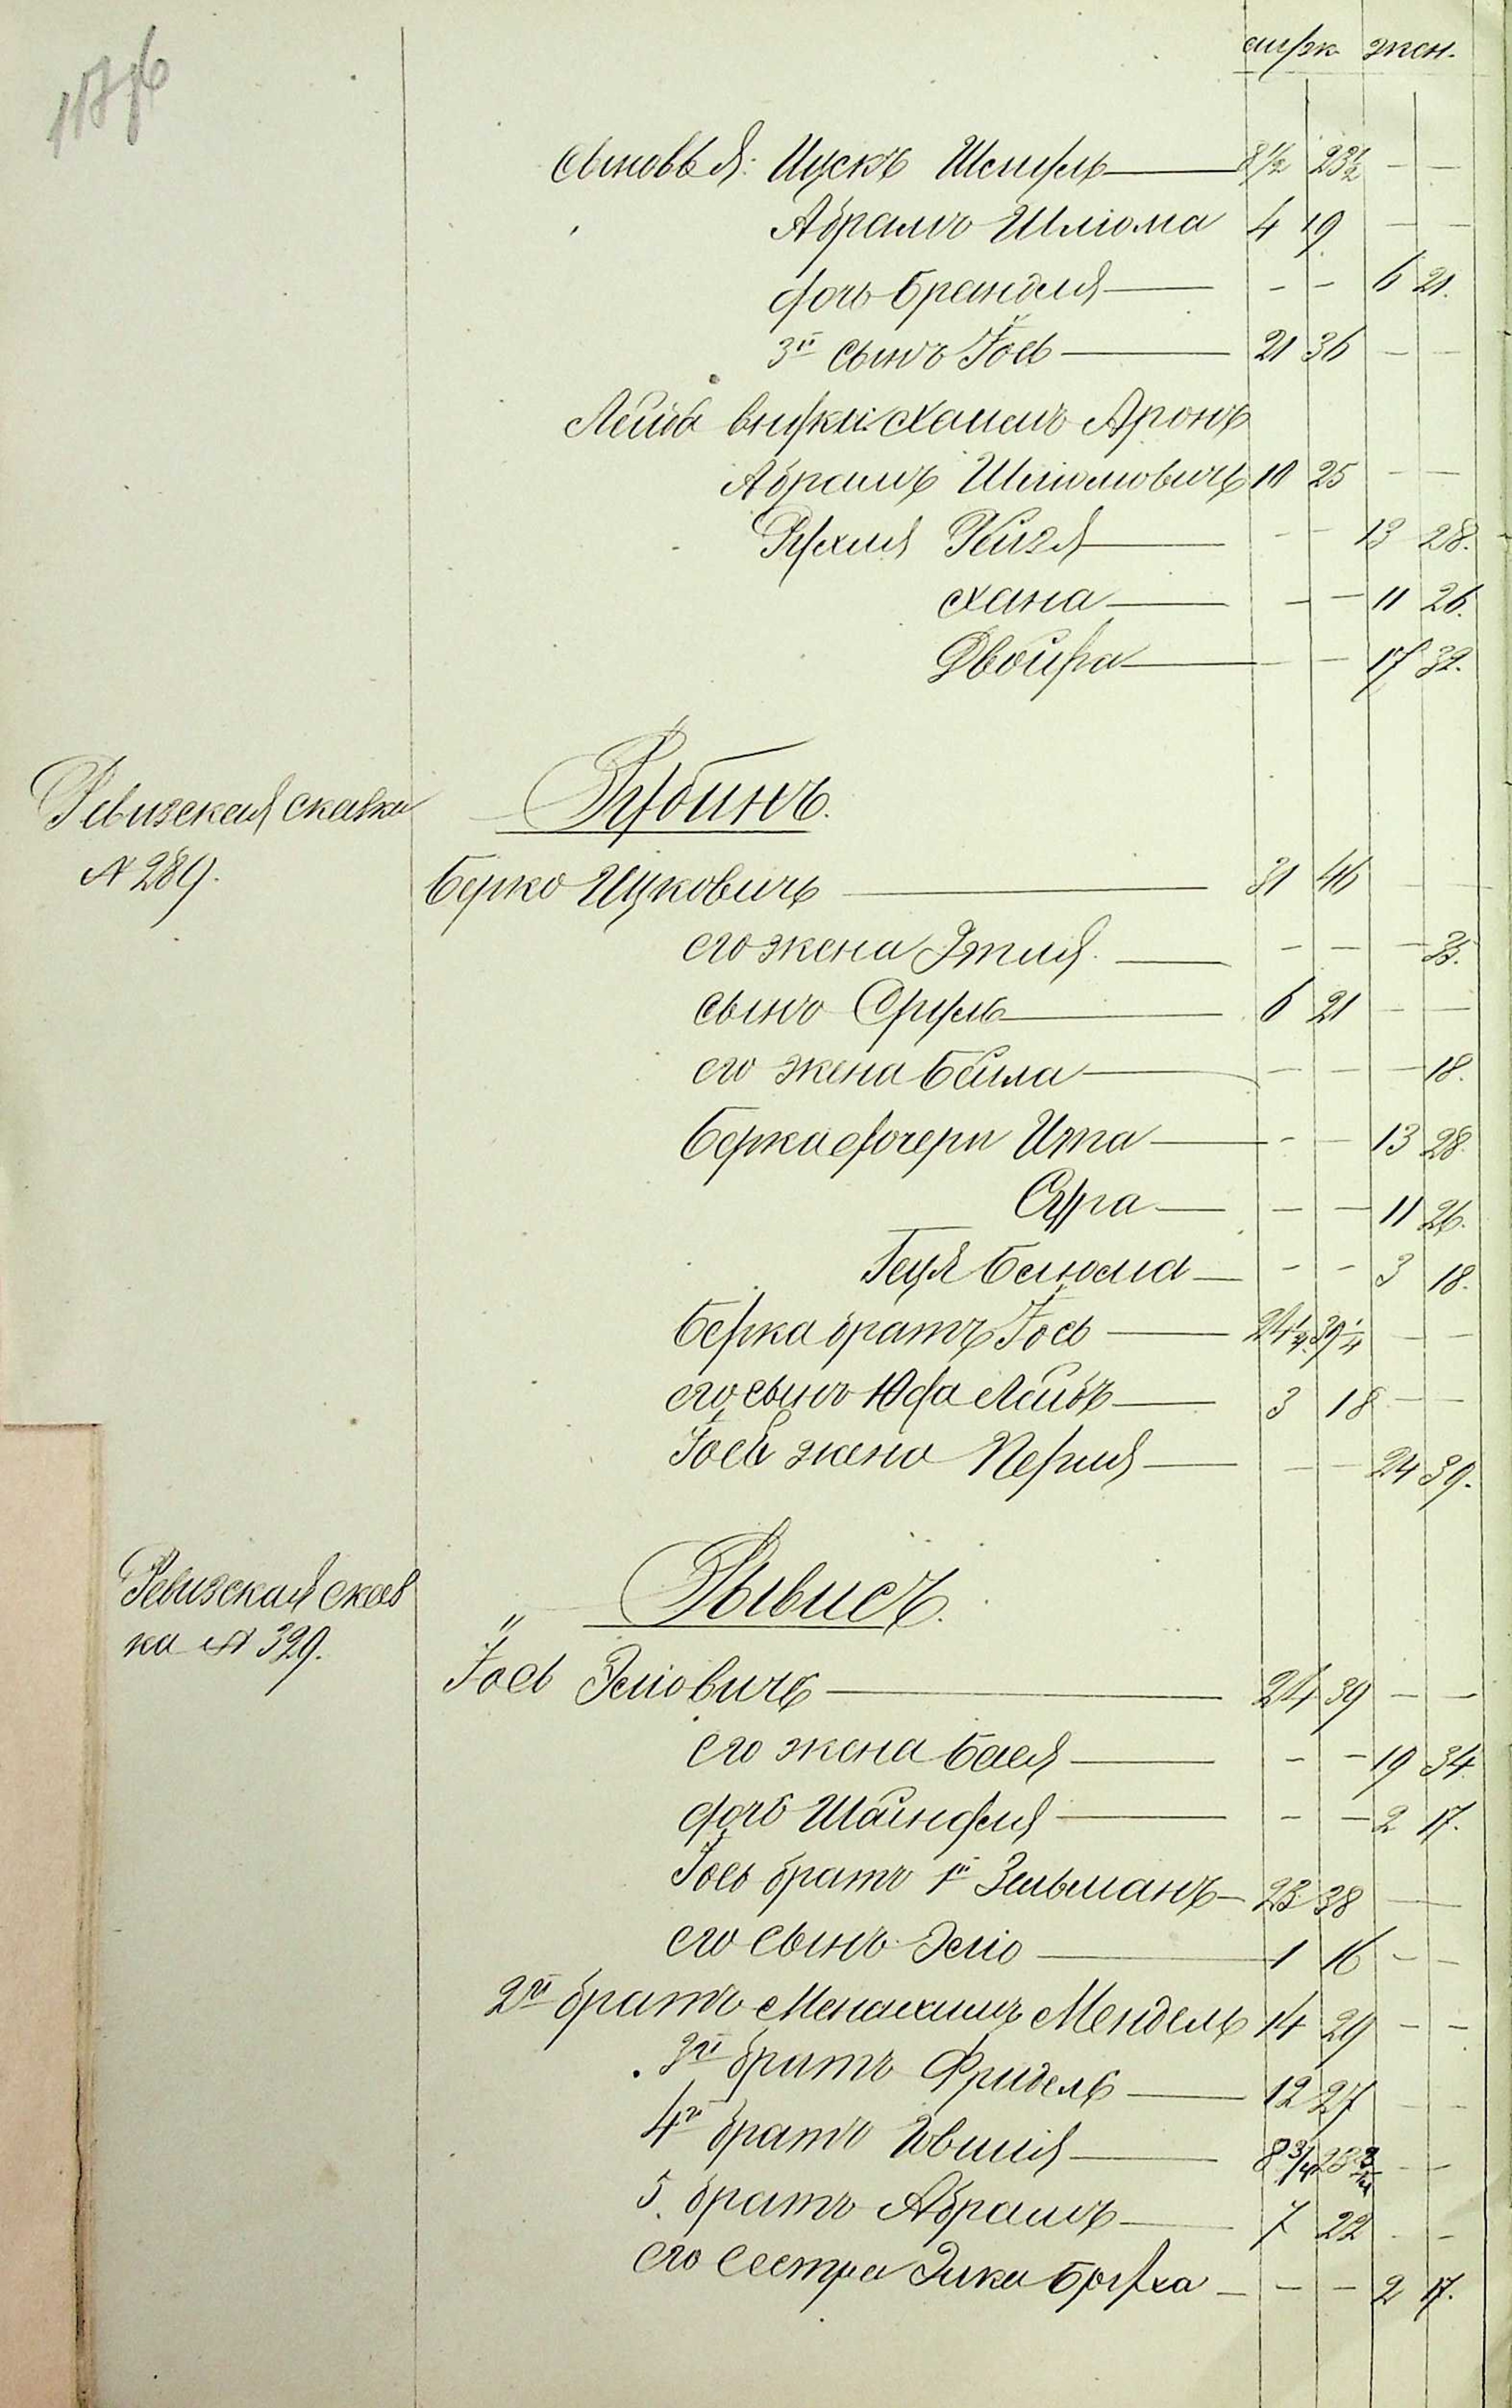 муж. жен.
Сыновья: Ицекъ Шмуль 8 1/2 23 1/2 — —
Абрамъ Шлюма 4 19 — —
дочь Брендля — — 6 21.
3й сынъ Іось 21 36 — —
Лейба внуки: Хаимъ Аронъ
Абрамъ Шлюмовичъ 10 25 — —
Рухля Рейзя — — 13 28.
Хана — — 11 26.
Двойра — — 17 32.
Ревизская сказка
№ 289.
Рубинъ.
Берко Ицковичъ 31 46 — —
его жена Этля. — — — 35.
сынъ Сруль 6 21 — —
его жена Бейла — — — 18.
Берка дочери Ита — — 13 28.
Сура — — 11 26.
Геця Блюма — — 3 18.
Берка братъ Іось 24 1/4 39 1/4 — —
его сынъ Юда Лейбъ 3 18 — —
Іося жена Перля — — 24 39.
Ревизская сказ
ка № 329.
Рывисъ.
Іось Эліовичъ 24 39 — —
его жена Бася — — 19 34
дочь Шейндля — — 2 17.
Іося братъ 1й Зельманъ 23 38 —
его сынъ Эліо 1 16 — —
2й братъ Менахимъ Мендель 14 29 — —
3й братъ Фридель 12 27 — —
4й братъ Іовшія 8 3/4 23 3/4 — —
5. братъ Абрамъ 7 22 — —
его сестра Элка Бруха — — 2 17.